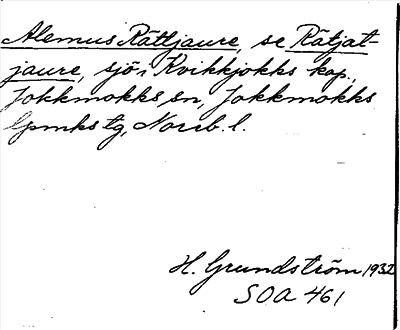 Alemus Rättjaure, se Rätjat-
jaure, sjö i Kvikkjokks kap.,
Jokkmokks sn, Jokkmokks
lpmks tg, Norrb. l.
H. Grundström 1932
SOA 461